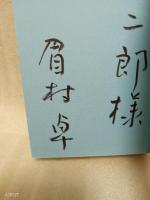 二郎様
眉村卓